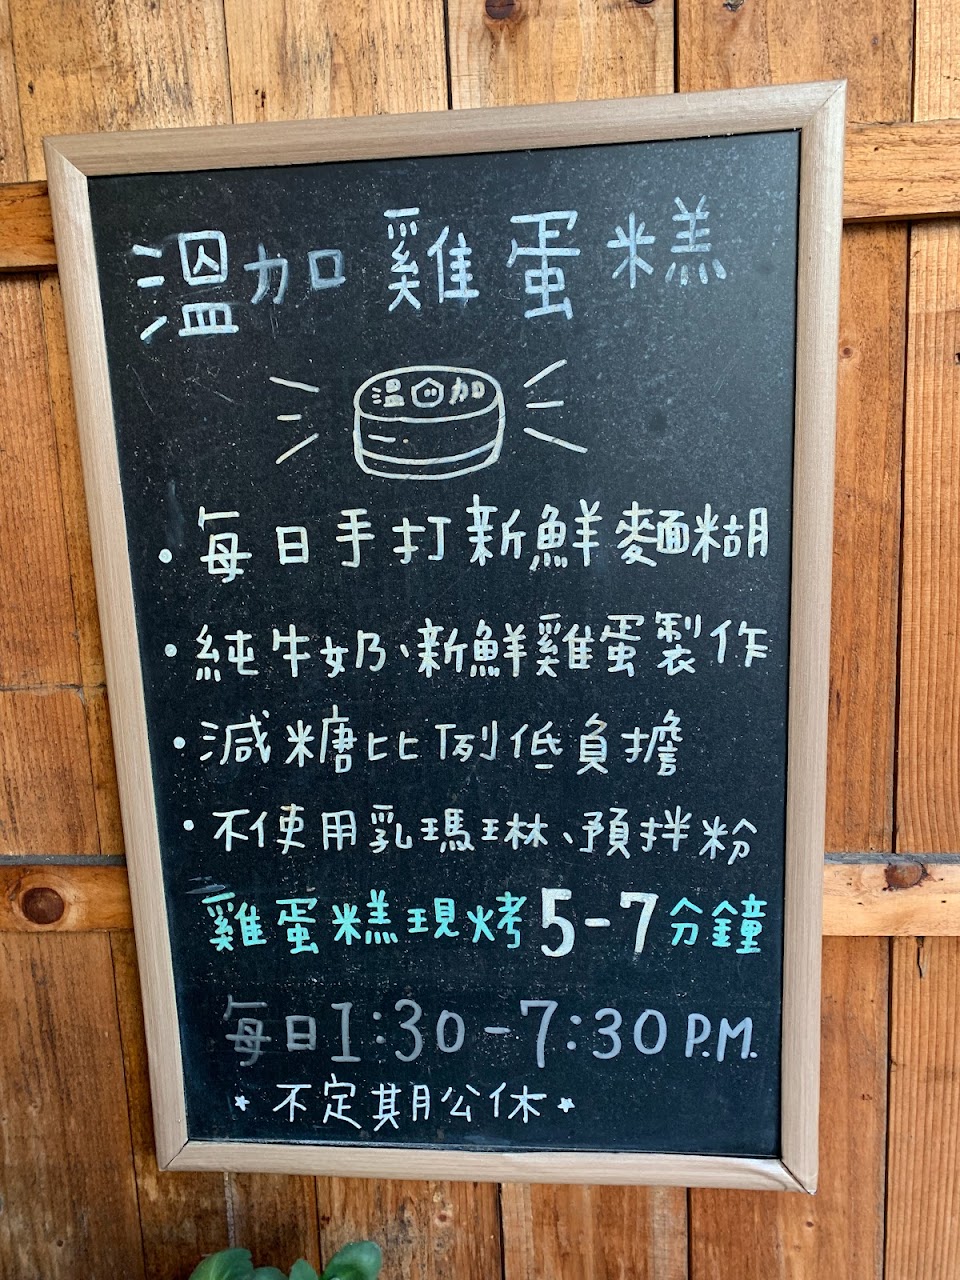 溫加雞蛋糕
溫 加
・每日手打新鮮麵糊
・純牛奶、新鮮雞蛋製作
・減糖比例低負擔
・不使用乳瑪琳、預拌粉
雞蛋糕現烤5-7分鐘
每日1:30-7:30 P.M.
*不定期公休*